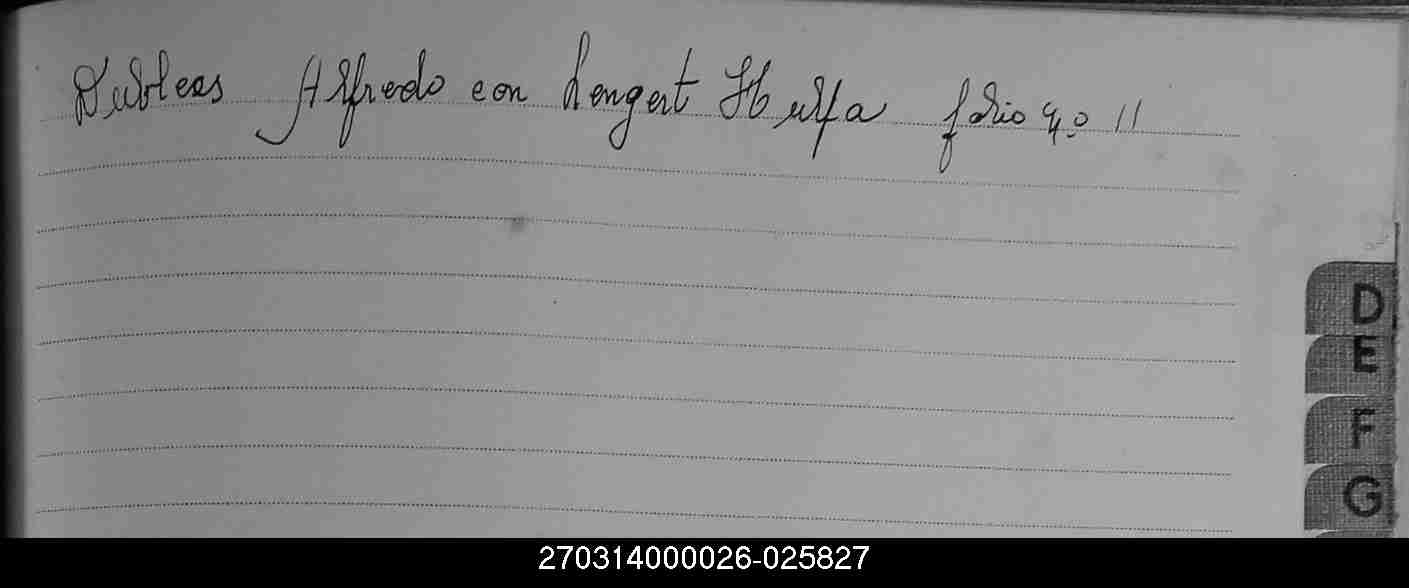 Dubleas Alfredo con Lengert Hulfa folio 40 11
D
E
F
G
270314000026-025827